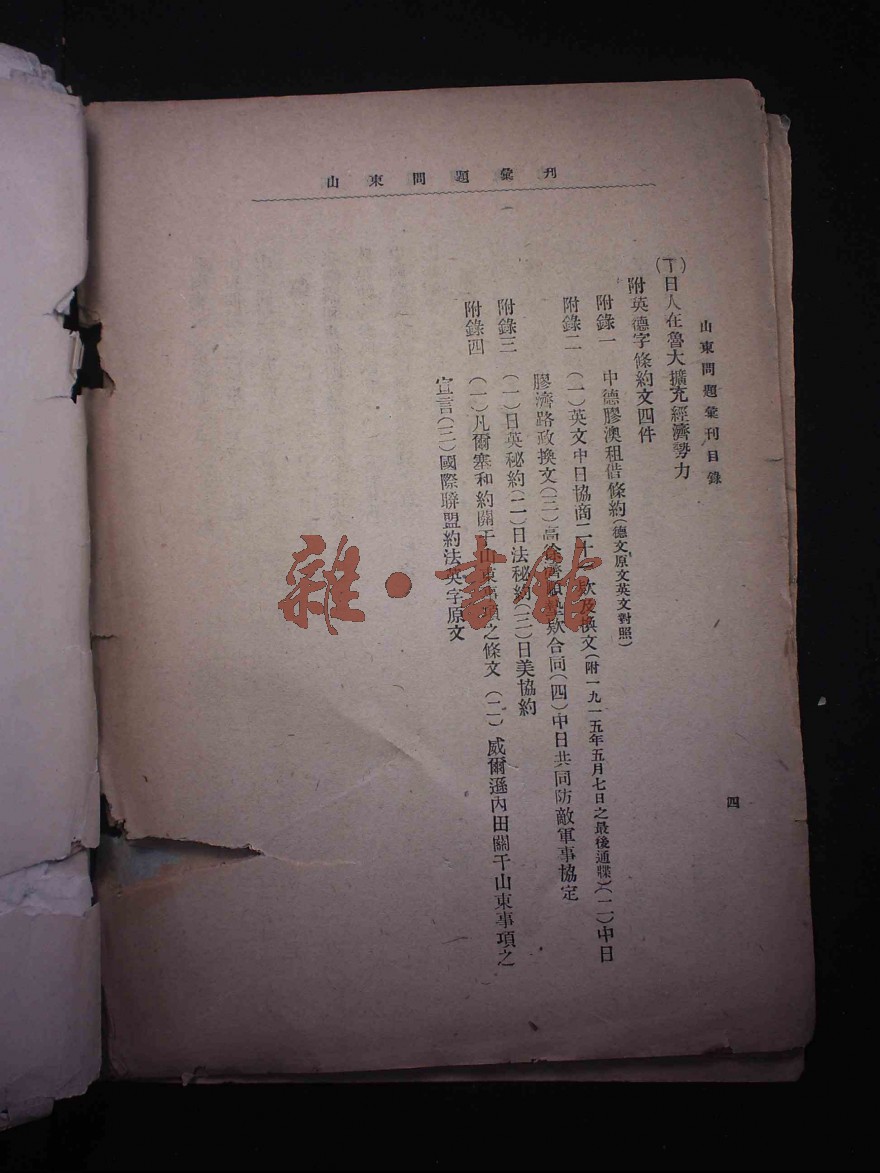 山東問題彙刊
山東問題彙刊目錄
四
(丁)日人在魯大擴充經濟勢力
附英德字條約文四件
附錄一 中德膠澳租借條約(德文原文英文對照)
附錄二 (一)英文中日協商二十一欵及換文(附一九一五年五月七日之最後通牒)(二)中日
膠濟路政換文(三)高徐濟順墊欵合同(四)中日共同防敵軍事協定
附錄三 (一)日英秘約(二)日法秘約(三)日美協約
附錄四 (一)凡爾塞和約關于山東事項之條文 (二)威爾遜內田關于山東事項之
宣言(三)國際聯盟約法英字原文
雜·書館